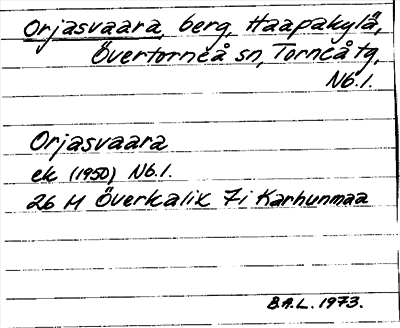 Orjasvaara, berg, Haapakylä,
Övertorneå sn, Torneå tg,
Nb.1.
Orjasvaara
ek (1950) Nb.1.
26 M Överkalix 7i Karhunmaa
B.A.L. 1973.